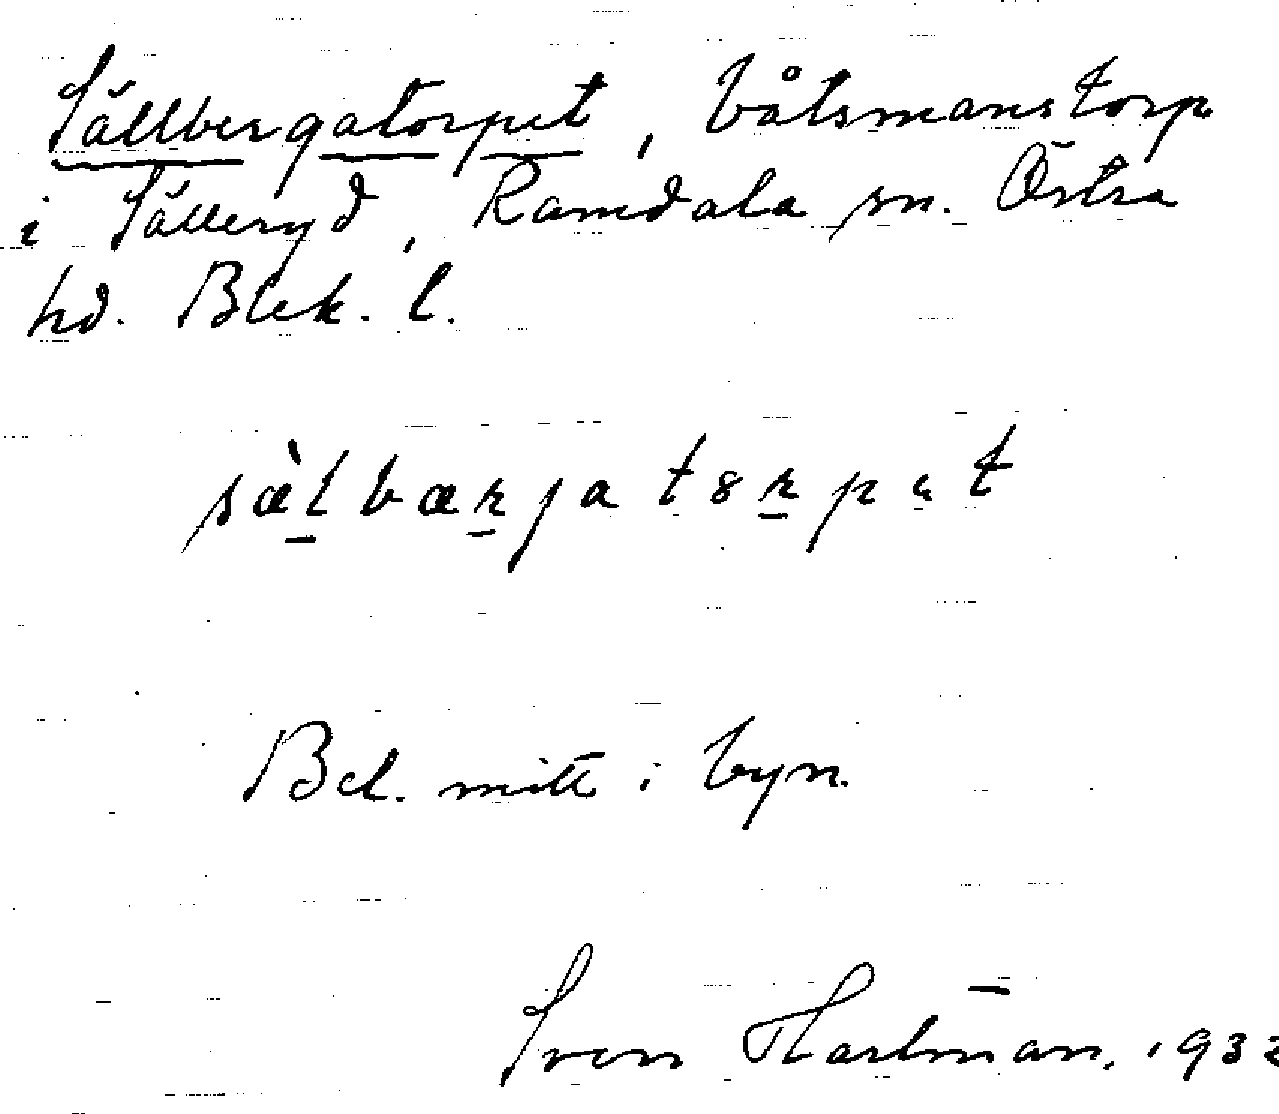 Sällbergatorpet, båtsmanstorp
i Sälleryd, Ramdala sn. Östra
hd. Blek. l.
sæ̀l̠bær̠jatȣr̠pɛt
Bel. mitt i byn.
Sven Hartman, 1932